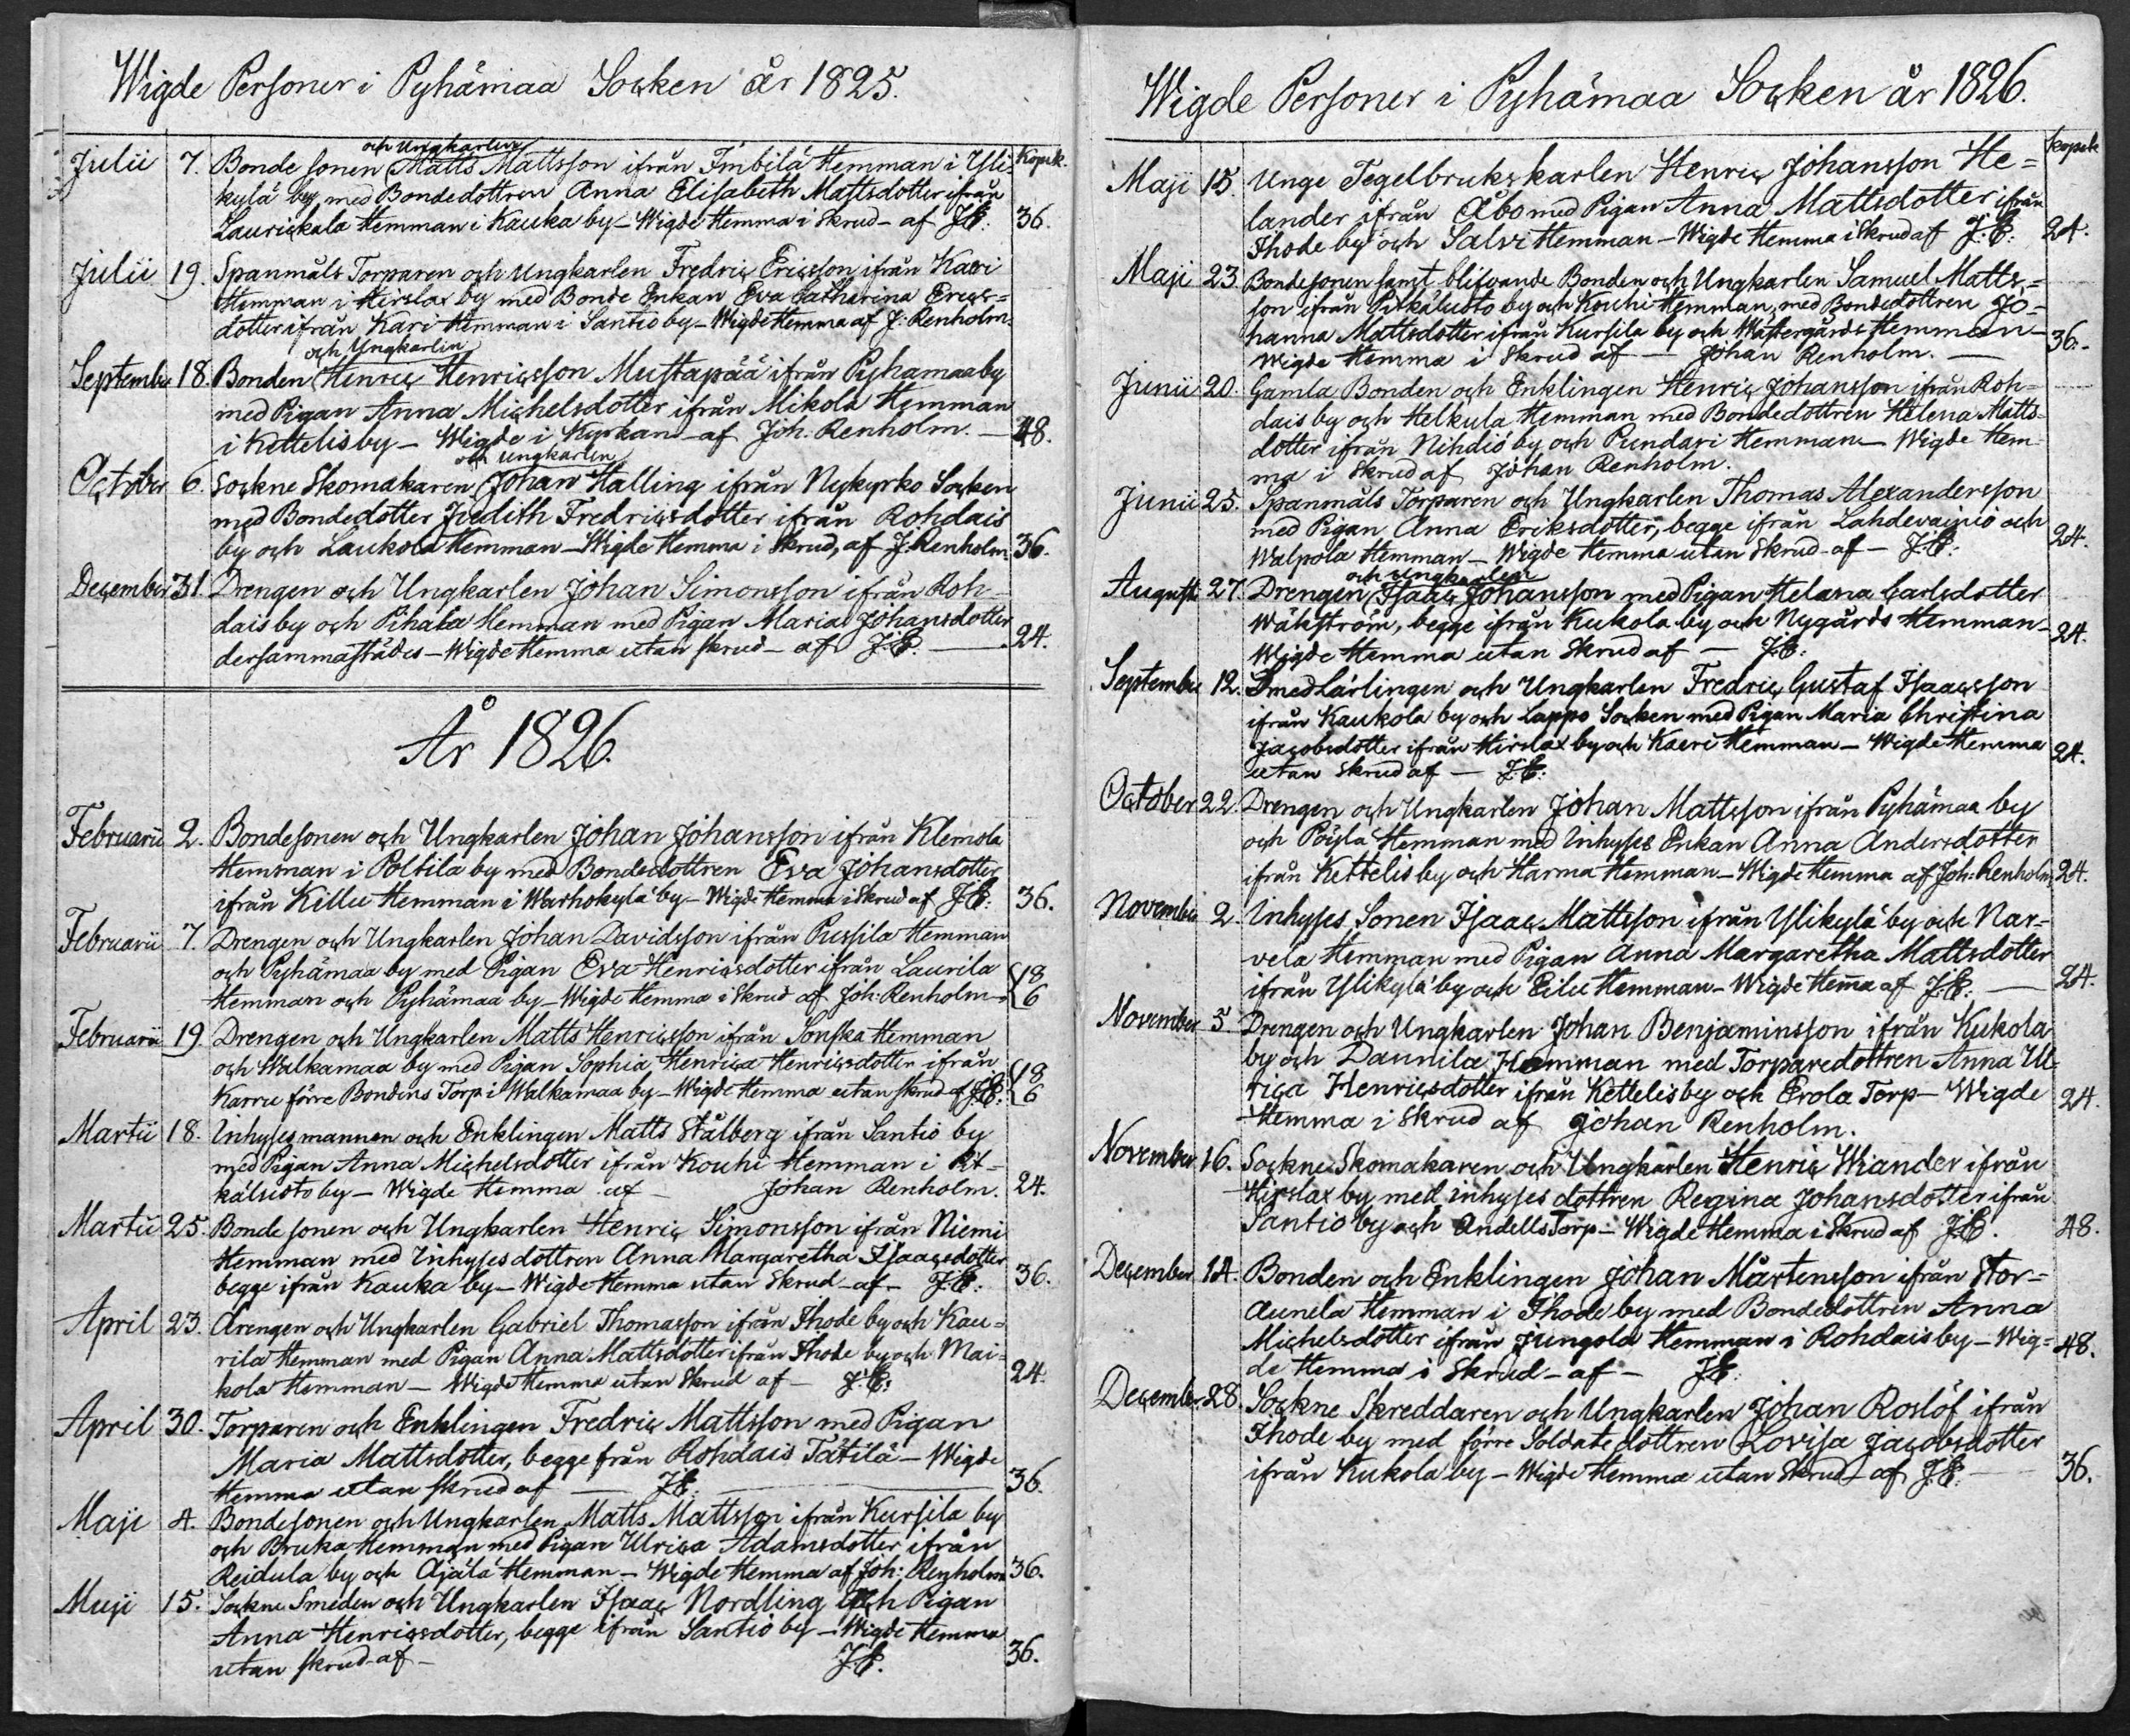 Wigde Personer i Pyhämaa Socken år 1825.
Kopek.
och Ungkarlen
Julii 7. Bonde sonen Matts Mattsson ifrån Imbilä Hemman i Yli-
kylä by, med Bondedottren Anna Elisabeth Mattsdotter ifrån
Laurickala Hemman i Kauka by – Wigde Hemma i Skrud – af J:E: 36.
Julii 19. Spanmåls Torparen och Ungkarlen Fredric Ericsson ifrån Kaeri
Hemman i Hirslax by med Bonde Enkan Eva Catharina Erics=
dotter ifrån Kari Hemman i Santio by – Wigde Hemma af J: Renholm.
och Ungkarlin
September 18. Bonden Henric Henricsson Mustapää ifrån Pyhamaa by
med Pigan Anna Michelsdotter ifrån Mikola Hemman
i Kettelis by – Wigde i Kyrkan – af Joh. Renholm. – 48.
och Ungkarlen
October 6. Sockne Skomakaren Johan Halling ifrån Nykyrko Socken
med Bondedotter Judith Fredricsdotter ifrån Rohdais
by och Laukola Hemman – Wigde Hemma i Skrud, af J. Renholm. 36.
December 31. Drengen och Ungkarlen Johan Simonsson ifrån Roh-
dais by och Pihala Hemman med Pigan Maria Johansdotter
dersammastädes – Wigde Hemma utan skrud – af J:E. – 24.
År 1826.
Februarii 2. Bondesonen och Ungkarlen Johan Johansson ifrån Klemola
Hemman i Poltila by med Bondedottren Eva Johansdotter
ifrån Killu Hemman i Warhokylä by – Wigde Hemma i Skrud af J:E: 36.
Februarii 7. Drengen och Ungkarlen Johan Davidsson ifrån Pussila Hemman
och Pyhämaa by med Pigan Eva Henricsdotter ifrån Laurila 18
Hemman och Pyhämaa by – Wigde Hemma i Skrud af Joh: Renholm – 6
Februarii 19. Drengen och Ungkarlen Matts Henricsson ifrån Sonska Hemman
och Walkamaa by med Pigan Sophia Henrica Henricsdotter ifrån 18
Karru förre Bondens Torp i Walkamaa by – Wigde Hemma utan skrud af J:E: 6
Martii 18. Inhyses mannen och Enklingen Matts Stålberg ifrån Santio by
med Pigan Anna Michelsdotter ifrån Kouhi Hemman i Pit-
käluoto by – Wigde Hemma af – Johan Renholm. 24.
Martii 25. Bonde sonen och Ungkarlen Henric Simonsson ifrån Niemi
Hemman med Inhyses dottren Anna Margaretha Isaacsdotter
begge ifrån Kauka by – Wigde Hemma utan Skrud – af – J:E: 36.
April 23. Drengen och Ungkarlen Gabriel Thomasson ifrån Ihode by och Kau=
rila Hemman med Pigan Anna Mattsdotter ifrån Ihode by och Mai=
kola Hemman – Wigde Hemma utan Skrud af – J:E: 24.
April 30. Torparen och Enklingen Fredric Mattsson med Pigan
Maria Mattsdotter, begge från Rohdais Tätilä – Wigde
Hemma utan skrud af – J:E: 36.
Maji 4. Bondesonen och Ungkarlen Matts Mattsson ifrån Kursila by
och Bruka Hemman med Pigan Ulrica Adamsdotter ifrån
Reidula by och Äjälä Hemman – Wigde Hemma af Joh: Renholm 36.
Maji 15. Sockne Smeden och Ungkarlen Isaac Nordling och Pigan
Anna Henricsdotter, begge ifrån Santio by – Wigde Hemma
utan skrud – af – J:E. 36.
Wigde Personer i Pyhämaa Socken år 1826.
kopek
Maji 15. Unge Tegelbruks karlen Henric Johansson He=
lander ifrån Åbo med Pigan Anna Mattsdotter ifrån
Ihode by och Salvi Hemman – Wigde Hemma i Skrud af J:E: 24.
Maji 23. Bondesonen samt blifvande Bonden och Ungkarlen Samuel Matts=
son ifrån Pitkäluoto by och Kouhi Hemman, med Bondedottren Jo-
hanna Mattsdotter ifrån Kursila by och Wästergårds Hemman – 36.
Wigde Hemma i Skrud af – Johan Renholm. –
Junii 20. Gamla Bonden och Enklingen Henric Johansson ifrån Roh=
dais by och Helkula Hemman med Bondedottren Helena Matts-
dotter ifrån Nihdiö by och Pundari Hemman – Wigde Hem-
ma i Skrud af Johan Renholm.
Junii 25. Spanmåls Torparen och Ungkarlen Thomas Alexandersson
med Pigan Anna Eriksdotter, begge ifrån Lahdevainio och
Walpola Hemman – Wigde Hemma utan Skrud – af – J:E: 24.
och Ungkarlen
Augusti 27. Drengen Isaac Johansson med Pigan Helena Carlsdotter
Wähström, begge ifrån Kukola by och Nygårds Hemman – 24.
Wigde Hemma utan Skrud af – J:E:
September 12. Smed Lärlingen och Ungkarlen Fredric Gustaf Isaacsson
ifrån Kaukola by och Lappo Socken med Pigan Maria Christina
Jacobsdotter ifrån Hirslax by och Kaeri Hemman – Wigde Hemma 24.
utan Skrud af – J:E:
October 22. Drengen och Ungkarlen Johan Mattsson ifrån Pyhämaa by
och Pöysä Hemman med Inhyses Enkan Anna Andersdotter
ifrån Kettelis by och Harma Hemman – Wigde Hemma af Joh: Renholm 24.
November 2. Inhyses Sonen Isaac Mattsson ifrån Ylikylä by och Nar-
vela Hemman med Pigan Anna Margaretha Mattsdotter
ifrån Ylikylä by och Eilu Hemman – Wigde Hem̅a af J:E: – 24.
November 5 Drengen och Ungkarlen Johan Benjaminsson ifrån Kukola
by och Daunila Hemman med Torparedottren Anna Ul-
rica Henricsdotter ifrån Kettelis by och Erola Torp – Wigde 24.
Hemma i Skrud af Johan Renholm.
November 16. Sockne Skomakaren och Ungkarlen Henric Wiander ifrån
Hirslax by med inhyses dottren Regina Johansdotter ifrån
Santio by och Andells Torp – Wigde Hemma i Skrud af J:E. 48.
December 14. Bonden och Enklingen Johan Mårtensson ifrån Stor=
Aunela Hemman i Ihode by med Bondedottren Anna
Michelsdotter ifrån Jungola Hemman i Rohdais by – Wig= 48.
de Hemma i Skrud – af – J:E.
December 28. Sockne Skreddaren och Ungkarlen Johan Roslöf ifrån
Ihode by med förre Soldate dottren Lovisa Jacobsdotter
ifrån Kukola by – Wigde Hemma utan Skrud – af J:E. – 36.